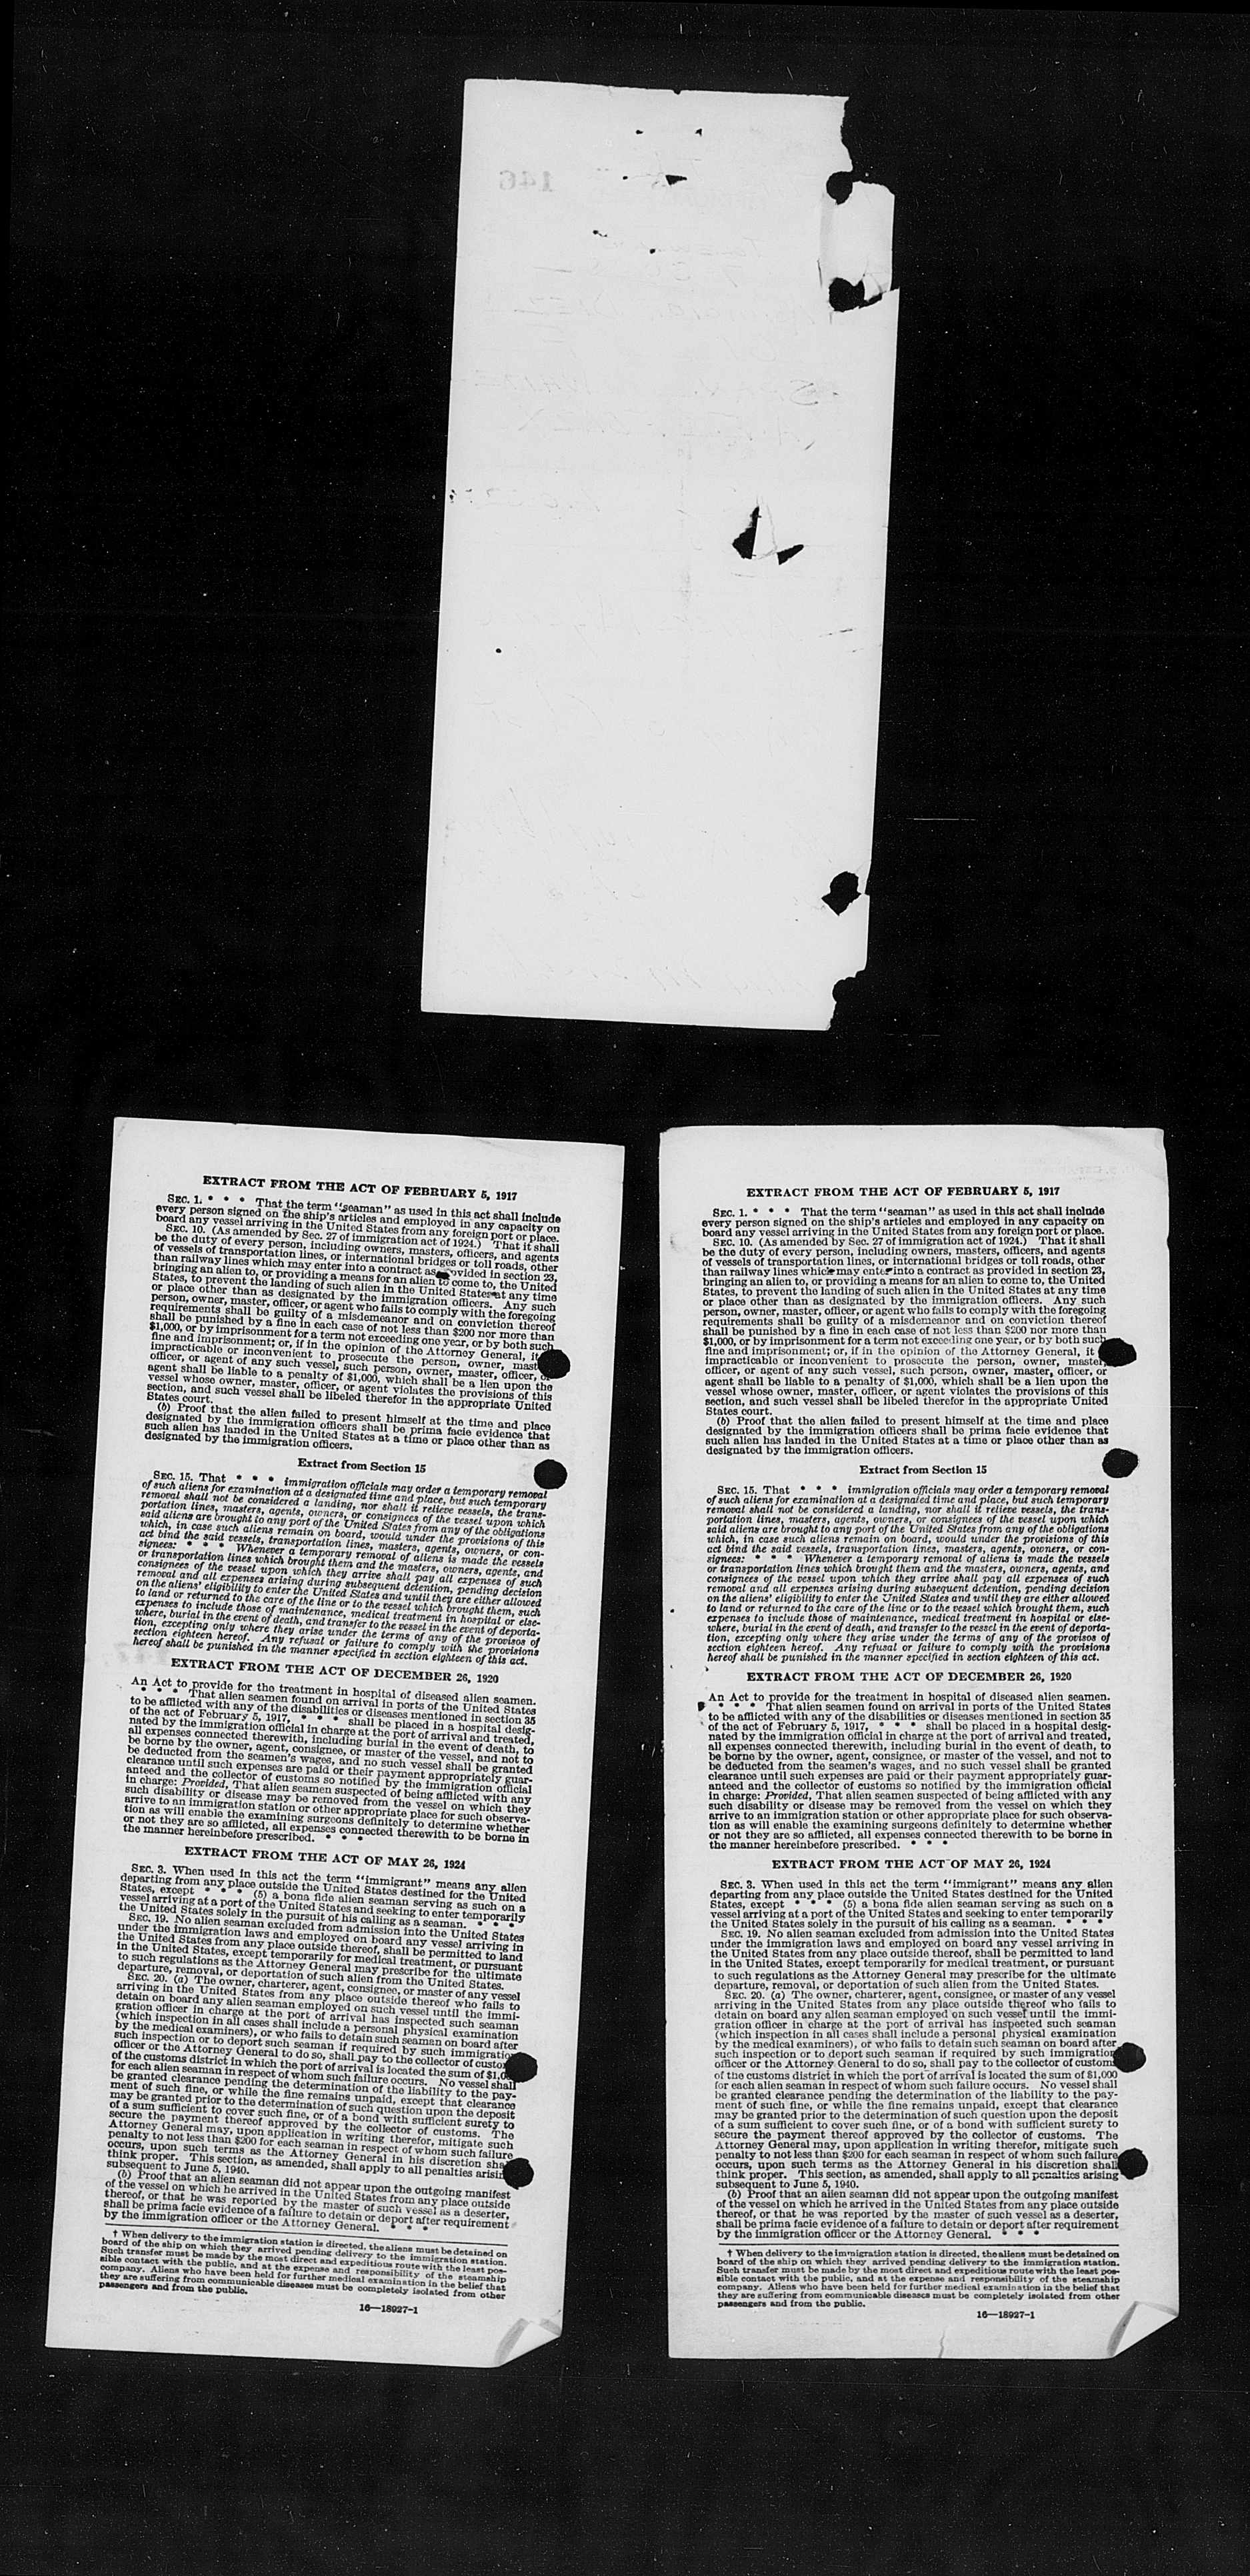 146
EXTRACT FROM THE ACT OF FEBRUARY 5, 1917
SEC. 1. * * * That the term "seaman" as used in this act shall include
every person signed on the ship's articles and employed in any capacity on
board any vessel arriving in the United States from any foreign port or place.
SEC. 10. (As amended by Sec. 27 of immigration act of 1924.) That it shall
be the duty of every person, including owners, masters, officers, and agents
of vessels of transportation lines, or international bridges or toll roads, other
than railway lines which may enter into a contract as provided in section 23,
bringing an alien to, or providing a means for an alien to come to, the United
States, to prevent the landing of such alien in the United States at any time
or place other than as designated by the immigration officers. Any such
person, owner, master, officer, or agent who fails to comply with the foregoing
requirements shall be guilty of a misdemeanor and on conviction thereof
shall be punished by a fine in each case of not less than $200 nor more than
$1,000, or by imprisonment for a term not exceeding one year, or by both such
fine and imprisonment; or, if in the opinion of the Attorney General, it
impracticable or inconvenient to prosecute the person, owner, mast
officer, or agent of any such vessel, such person, owner, master, officer, or
agent shall be liable to a penalty of $1,000, which shall be a lien upon the
vessel whose owner, master, officer, or agent violates the provisions of this
section, and such vessel shall be libeled therefor in the appropriate United
States court.
(b) Proof that the alien failed to present himself at the time and place
designated by the immigration officers shall be prima facie evidence that
such alien has landed in the United States at a time or place other than as
designated by the immigration officers.
Extract from Section 15
SEC. 15. That * * * immigration officials may order a temporary removal
of such aliens for examination at a designated time and place, but such temporary
removal shall not be considered a landing, nor shall it relieve vessels, the trans-
portation lines, masters, agents, owners, or consignees of the vessel upon which
said aliens are brought to any port of the United States from any of the obligations
which, in case such aliens remain on board, would under the provisions of this
act bind the said vessels, transportation lines, masters, agents, owners, or con-
signees: * * * Whenever a temporary removal of aliens is made the vessels
or transportation lines which brought them and the masters, owners, agents, and
consignees of the vessel upon which they arrive shall pay all expenses of such
removal and all expenses arising during subsequent detention, pending decision
on the aliens' eligibility to enter the United States and until they are either allowed
to land or returned to the care of the line or to the vessel which brought them, such
expenses to include those of maintenance, medical treatment in hospital or else-
where, burial in the event of death, and transfer to the vessel in the event of deporta-
tion, excepting only where they arise under the terms of any of the provisos of
section eighteen hereof. Any refusal or failure to comply with the provisions
hereof shall be punished in the manner specified in section eighteen of this act.
EXTRACT FROM THE ACT OF DECEMBER 26, 1920
An Act to provide for the treatment in hospital of diseased alien seamen.
* * * * That alien seamen found on arrival in ports of the United States
to be afflicted with any of the disabilities or diseases mentioned in section 35
of the act of February 5, 1917, * * * shall be placed in a hospital desig-
nated by the immigration official in charge at the port of arrival and treated,
all expenses connected therewith, including burial in the event of death, to
be borne by the owner, agent, consignee, or master of the vessel, and not to
be deducted from the seamen's wages, and no such vessel shall be granted
clearance until such expenses are paid or their payment appropriately guar-
anteed and the collector of customs so notified by the immigration official
in charge: Provided, That alien seamen suspected of being afflicted with any
such disability or disease may be removed from the vessel on which they
arrive to an immigration station or other appropriate place for such observa-
tion as will enable the examining surgeons definitely to determine whether
or not they are so afflicted, all expenses connected therewith to be borne in
the manner hereinbefore prescribed. * * *
EXTRACT FROM THE ACT OF MAY 26, 1924
SEC. 3. When used in this act the term "immigrant" means any alien
departing from any place outside the United States destined for the United
States, except * * * (5) a bona fide alien seaman serving as such on a
vessel arriving at a port of the United States and seeking to enter temporarily
the United States solely in the pursuit of his calling as a seaman. * * *
SEC. 19. No alien seaman excluded from admission into the United States
under the immigration laws and employed on board any vessel arriving in
the United States from any place outside thereof, shall be permitted to land
in the United States, except temporarily for medical treatment, or pursuant
to such regulations as the Attorney General may prescribe for the ultimate
departure, removal, or deportation of such alien from the United States.
SEC. 20. (a) The owner, charterer, agent, consignee, or master of any vessel
arriving in the United States from any place outside thereof who fails to
detain on board any alien seaman employed on such vessel until the immi-
gration officer in charge at the port of arrival has inspected such seaman
(which inspection in all cases shall include a personal physical examination
by the medical examiners), or who fails to detain such seaman on board after
such inspection or to deport such seaman if required by such immigration
officer or the Attorney General to do so, shall pay to the collector of custom
of the customs district in which the port of arrival is located the sum of $1,0
for each alien seaman in respect of whom such failure occurs. No vessel shall
be granted clearance pending the determination of the liability to the pay-
ment of such fine, or while the fine remains unpaid, except that clearance
may be granted prior to the determination of such question upon the deposit
of a sum sufficient to cover such fine, or of a bond with sufficient surety to
secure the payment thereof approved by the collector of customs. The
Attorney General may, upon application in writing therefor, mitigate such
penalty to not less than $200 for each seaman in respect of whom such failure
occurs, upon such terms as the Attorney General in his discretion sha
think proper. This section, as amended, shall apply to all penalties arisin
subsequent to June 5, 1940.
(b) Proof that an alien seaman did not appear upon the outgoing manifest
of the vessel on which he arrived in the United States from any place outside
thereof, or that he was reported by the master of such vessel as a deserter,
shall be prima facie evidence of a failure to detain or deport after requirement
by the immigration officer or the Attorney General. * * *
† When delivery to the immigration station is directed, the aliens must be detained on
board of the ship on which they arrived pending delivery to the immigration station.
Such transfer must be made by the most direct and expeditious route with the least pos-
sible contact with the public, and at the expense and responsibility of the steamship
company. Aliens who have been held for further medical examination in the belief that
they are suffering from communicable diseases must be completely isolated from other
passengers and from the public.
16—18927-1
EXTRACT FROM THE ACT OF FEBRUARY 5, 1917
SEC. 1. * * * That the term "seaman" as used in this act shall include
every person signed on the ship's articles and employed in any capacity on
board any vessel arriving in the United States from any foreign port or place.
SEC. 10. (As amended by Sec. 27 of immigration act of 1924.) That it shall
be the duty of every person, including owners, masters, officers, and agents
of vessels of transportation lines, or international bridges or toll roads, other
than railway lines which may enter into a contract as provided in section 23,
bringing an alien to, or providing a means for an alien to come to, the United
States, to prevent the landing of such alien in the United States at any time
or place other than as designated by the immigration officers. Any such
person, owner, master, officer, or agent who fails to comply with the foregoing
requirements shall be guilty of a misdemeanor and on conviction thereof
shall be punished by a fine in each case of not less than $200 nor more than
$1,000, or by imprisonment for a term not exceeding one year, or by both such
fine and imprisonment; or, if in the opinion of the Attorney General, it
impracticable or inconvenient to prosecute the person, owner, master,
officer, or agent of any such vessel, such person, owner, master, officer, or
agent shall be liable to a penalty of $1,000, which shall be a lien upon the
vessel whose owner, master, officer, or agent violates the provisions of this
section, and such vessel shall be libeled therefor in the appropriate United
States court.
(b) Proof that the alien failed to present himself at the time and place
designated by the immigration officers shall be prima facie evidence that
such alien has landed in the United States at a time or place other than as
designated by the immigration officers.
Extract from Section 15
SEC. 15. That * * * immigration officials may order a temporary removal
of such aliens for examination at a designated time and place, but such temporary
removal shall not be considered a landing, nor shall it relieve vessels, the trans-
portation lines, masters, agents, owners, or consignees of the vessel upon which
said aliens are brought to any port of the United States from any of the obligations
which, in case such aliens remain on board, would under the provisions of this
act bind the said vessels, transportation lines, masters, agents, owners, or con-
signees: * * * Whenever a temporary removal of aliens is made the vessels
or transportation lines which brought them and the masters, owners, agents, and
consignees of the vessel upon which they arrive shall pay all expenses of such
removal and all expenses arising during subsequent detention, pending decision
on the aliens' eligibility to enter the United States and until they are either allowed
to land or returned to the care of the line or to the vessel which brought them, such
expenses to include those of maintenance, medical treatment in hospital or else-
where, burial in the event of death, and transfer to the vessel in the event of deporta-
tion, excepting only where they arise under the terms of any of the provisos of
section eighteen hereof. Any refusal or failure to comply with the provisions
hereof shall be punished in the manner specified in section eighteen of this act.
EXTRACT FROM THE ACT OF DECEMBER 26, 1920
An Act to provide for the treatment in hospital of diseased alien seamen.
* * * * That alien seamen found on arrival in ports of the United States
to be afflicted with any of the disabilities or diseases mentioned in section 35
of the act of February 5, 1917, * * * shall be placed in a hospital desig-
nated by the immigration official in charge at the port of arrival and treated,
all expenses connected therewith, including burial in the event of death, to
be borne by the owner, agent, consignee, or master of the vessel, and not to
be deducted from the seamen's wages, and no such vessel shall be granted
clearance until such expenses are paid or their payment appropriately guar-
anteed and the collector of customs so notified by the immigration official
in charge: Provided, That alien seamen suspected of being afflicted with any
such disability or disease may be removed from the vessel on which they
arrive to an immigration station or other appropriate place for such observa-
tion as will enable the examining surgeons definitely to determine whether
or not they are so afflicted, all expenses connected therewith to be borne in
the manner hereinbefore prescribed. * * *
EXTRACT FROM THE ACT OF MAY 26, 1924
SEC. 3. When used in this act the term "immigrant" means any alien
departing from any place outside the United States destined for the United
States, except * * * (5) a bona fide alien seaman serving as such on a
vessel arriving at a port of the United States and seeking to enter temporarily
the United States solely in the pursuit of his calling as a seaman. * * *
SEC. 19. No alien seaman excluded from admission into the United States
under the immigration laws and employed on board any vessel arriving in
the United States from any place outside thereof, shall be permitted to land
in the United States, except temporarily for medical treatment, or pursuant
to such regulations as the Attorney General may prescribe for the ultimate
departure, removal, or deportation of such alien from the United States.
SEC. 20. (a) The owner, charterer, agent, consignee, or master of any vessel
arriving in the United States from any place outside thereof who fails to
detain on board any alien seaman employed on such vessel until the immi-
gration officer in charge at the port of arrival has inspected such seaman
(which inspection in all cases shall include a personal physical examination
by the medical examiners), or who fails to detain such seaman on board after
such inspection or to deport such seaman if required by such immigration
officer or the Attorney General to do so, shall pay to the collector of custom
of the customs district in which the port of arrival is located the sum of $1,000
for each alien seaman in respect of whom such failure occurs. No vessel shall
be granted clearance pending the determination of the liability to the pay-
ment of such fine, or while the fine remains unpaid, except that clearance
may be granted prior to the determination of such question upon the deposit
of a sum sufficient to cover such fine, or of a bond with sufficient surety to
secure the payment thereof approved by the collector of customs. The
Attorney General may, upon application in writing therefor, mitigate such
penalty to not less than $200 for each seaman in respect of whom such failure
occurs, upon such terms as the Attorney General in his discretion shall
think proper. This section, as amended, shall apply to all penalties arising
subsequent to June 5, 1940.
(b) Proof that an alien seaman did not appear upon the outgoing manifest
of the vessel on which he arrived in the United States from any place outside
thereof, or that he was reported by the master of such vessel as a deserter,
shall be prima facie evidence of a failure to detain or deport after requirement
by the immigration officer or the Attorney General. * * *
† When delivery to the immigration station is directed, the aliens must be detained on
board of the ship on which they arrived pending delivery to the immigration station.
Such transfer must be made by the most direct and expeditious route with the least pos-
sible contact with the public, and at the expense and responsibility of the steamship
company. Aliens who have been held for further medical examination in the belief that
they are suffering from communicable diseases must be completely isolated from other
passengers and from the public.
16—18927-1